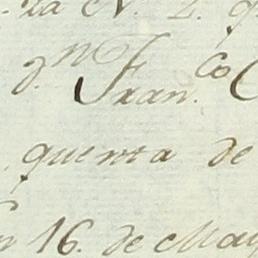 la N. 2. q
d.n Fran.co C
quenta de
n 16. de May